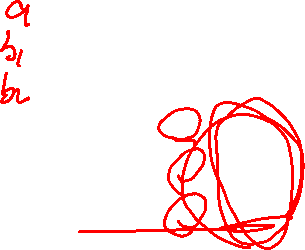 a
b1
b2